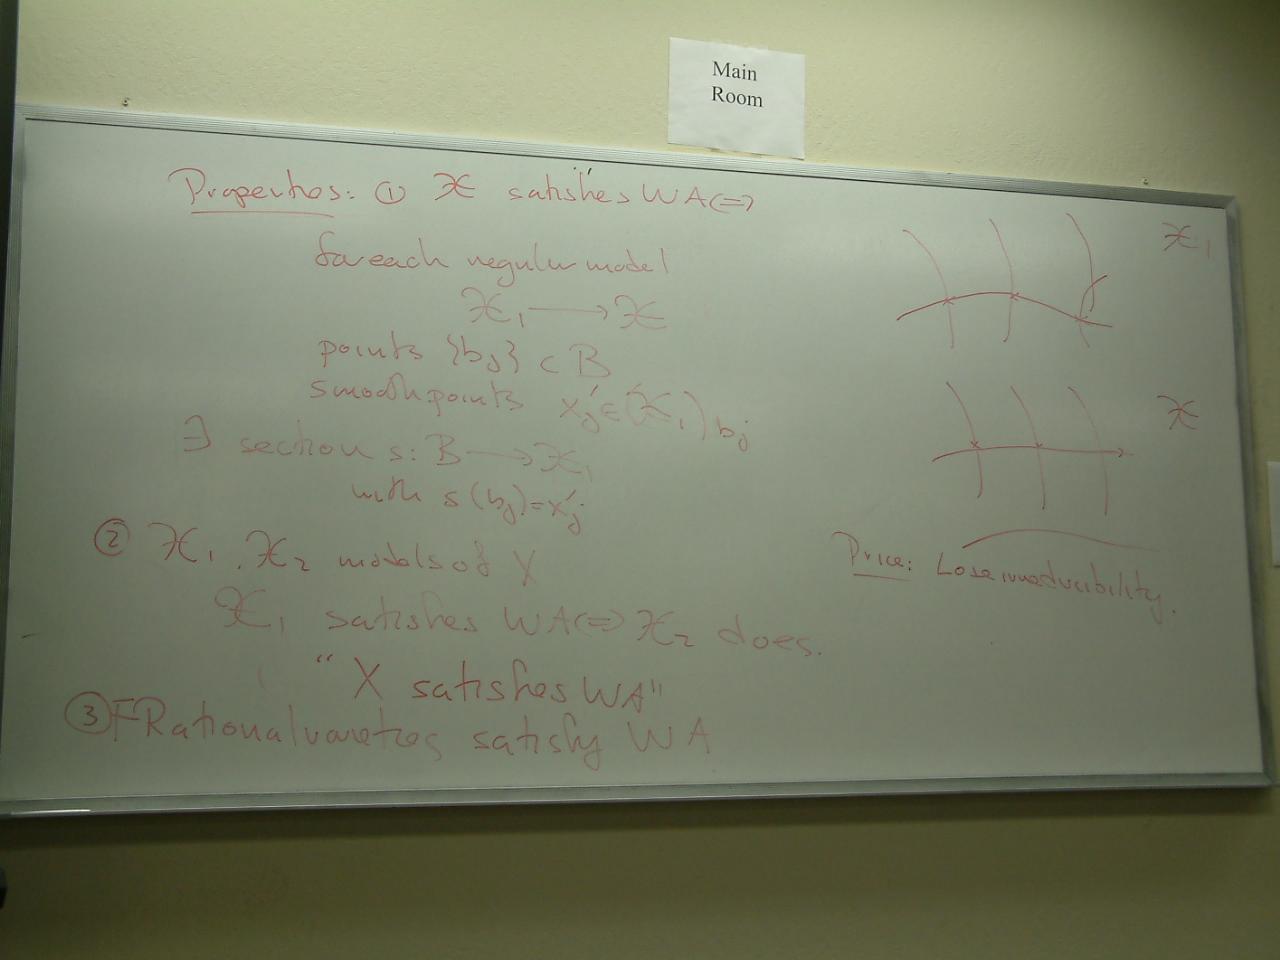 Main
Room
Properties: ① 𝒳 satisfies WA ⇔
for each regular model
𝒳₁ → 𝒳
points {bj} ⊂ B
smooth points x'j ∈ (𝒳₁)bj
∃ section s: B → 𝒳₁
with s(bj) = x'j
② 𝒳₁, 𝒳₂ models of X
𝒳₁ satisfies WA ⇔ 𝒳₂ does.
"X satisfies WA"
③ F Rational varieties satisfy WA
𝒳₁
𝒳
Price: Lose irreducibility.